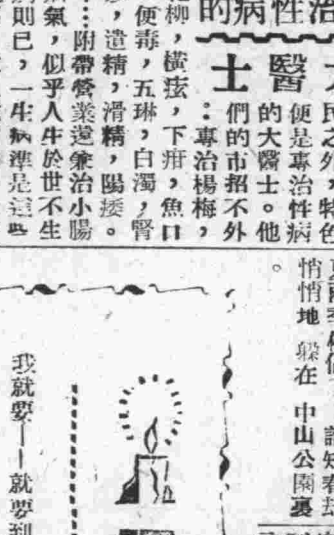 治性病的
大醫士
民之外，特色
便是專治性病
的大醫士。他
們的市招不外
：專治楊梅，
花柳，橫痃，下疳，魚口
便毒，五琳，白濁，腎
，遺精，滑精，陽痿。
…附帶營業還兼治小腸
氣，似乎人生於世不生
病則已，一生病準是這些
悄悄地 躲在 中山公園裏
。
我就要——就要到